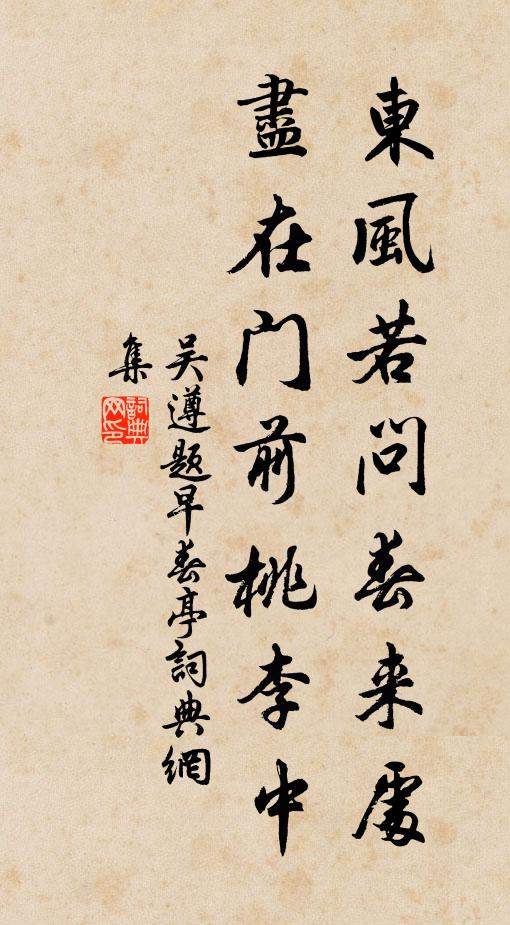 東風若問春来處
盡在門前桃李中
吴遵題早春亭詞典網
集
詞典網印